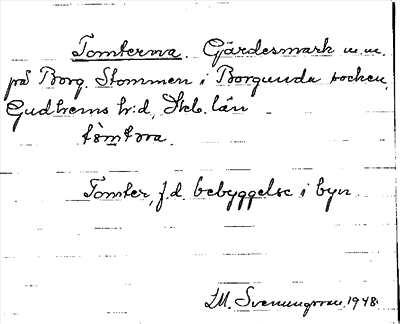 Tomterna. Gärdesmark m.m.
på Borg. Stommen i Borgunda socken,
Gudhems h:d, Skb. län
tòmtɷa.
Tomter, f.d. bebyggelse i byn
M. Svenungsson 1948